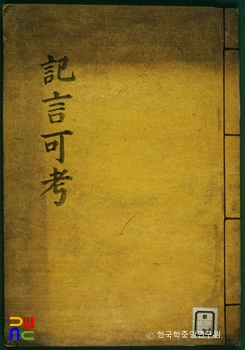 記言可考
© 한국학중앙연구원